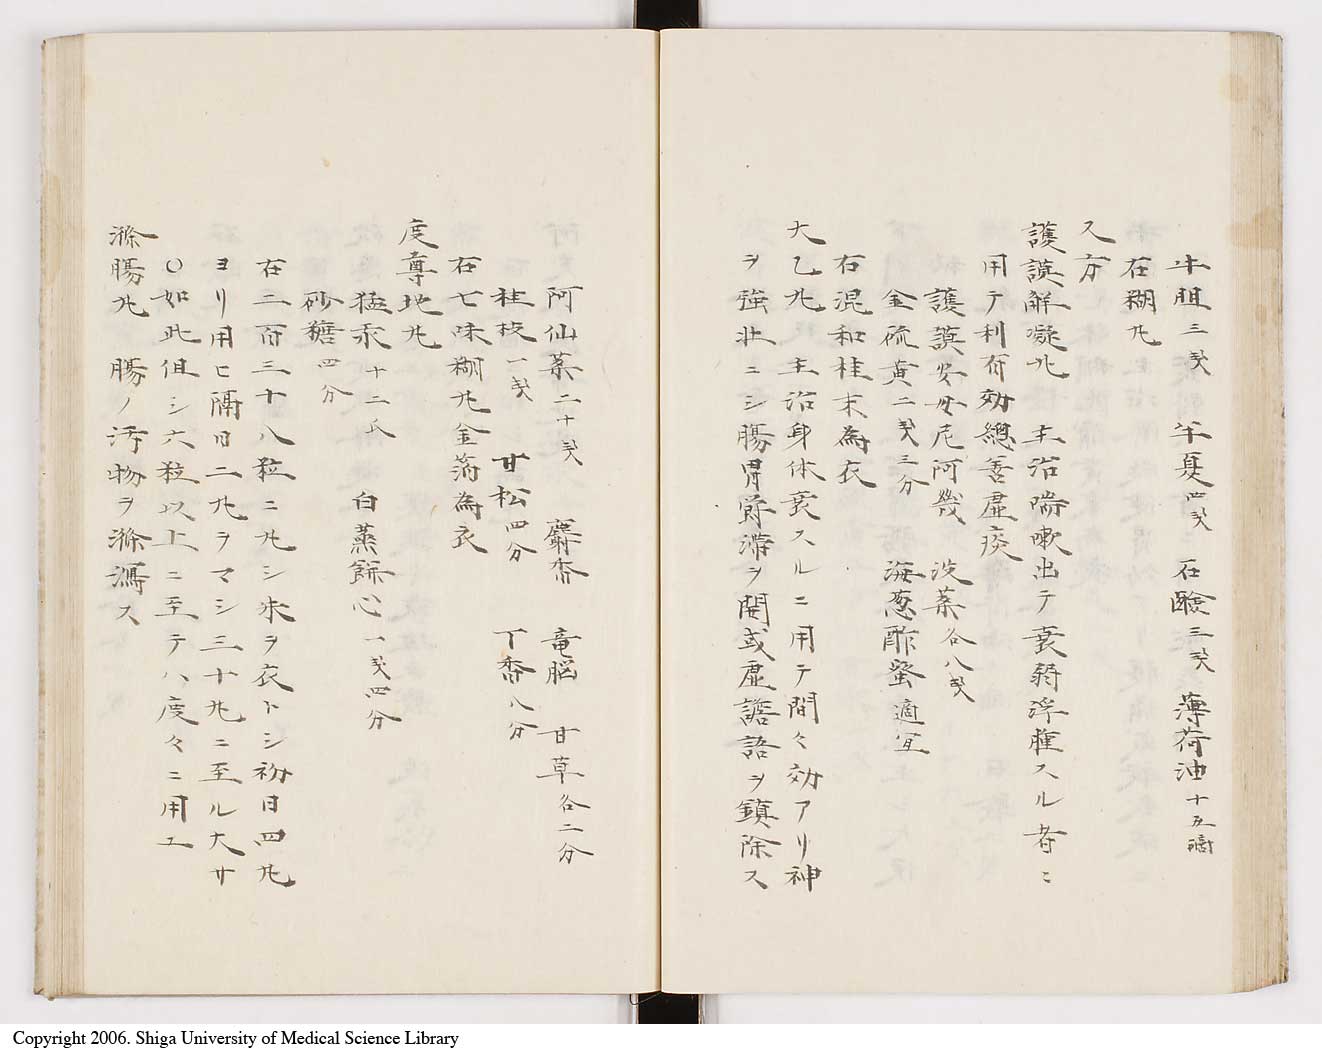 牛胆三戔 半夏四戔 石鹸三戔 薄荷油十五滴
右糊丸
又方
護謨解凝丸 主治喘嗽出テ衰弱浮腫スル者ニ
用テ利有効總善虚痰
護謨安母尼阿幾 没薬各八戔
金硫黄二戔三分 海葱酢蜜適宜
右混和桂末為衣
大乙丸 主治身体衰スルニ用テ間々効アリ神
ヲ強壮ニシ腸胃欝滞ヲ開或虚譫語ヲ鎮除ス
阿仙薬二十戔 麝香 竜脳 甘草各二分
桂枝一戔 甘松四分 丁香八分
右七味糊丸金箔為衣
度尊地丸
猛汞十二瓜 白蒸餅心一戔四分
砂糖四分
右二百三十八粒ニ丸シ朱ヲ衣トシ初日四丸
ヨリ用ヒ隔日二丸ヲマシ三十丸ニ至ル大サ
〇如此但シ六粒以上ニ至テハ度々ニ用エ
滌腸丸 腸ノ汚物ヲ滌瀉ス
Copyright 2006. Shiga University of Medical Science Library